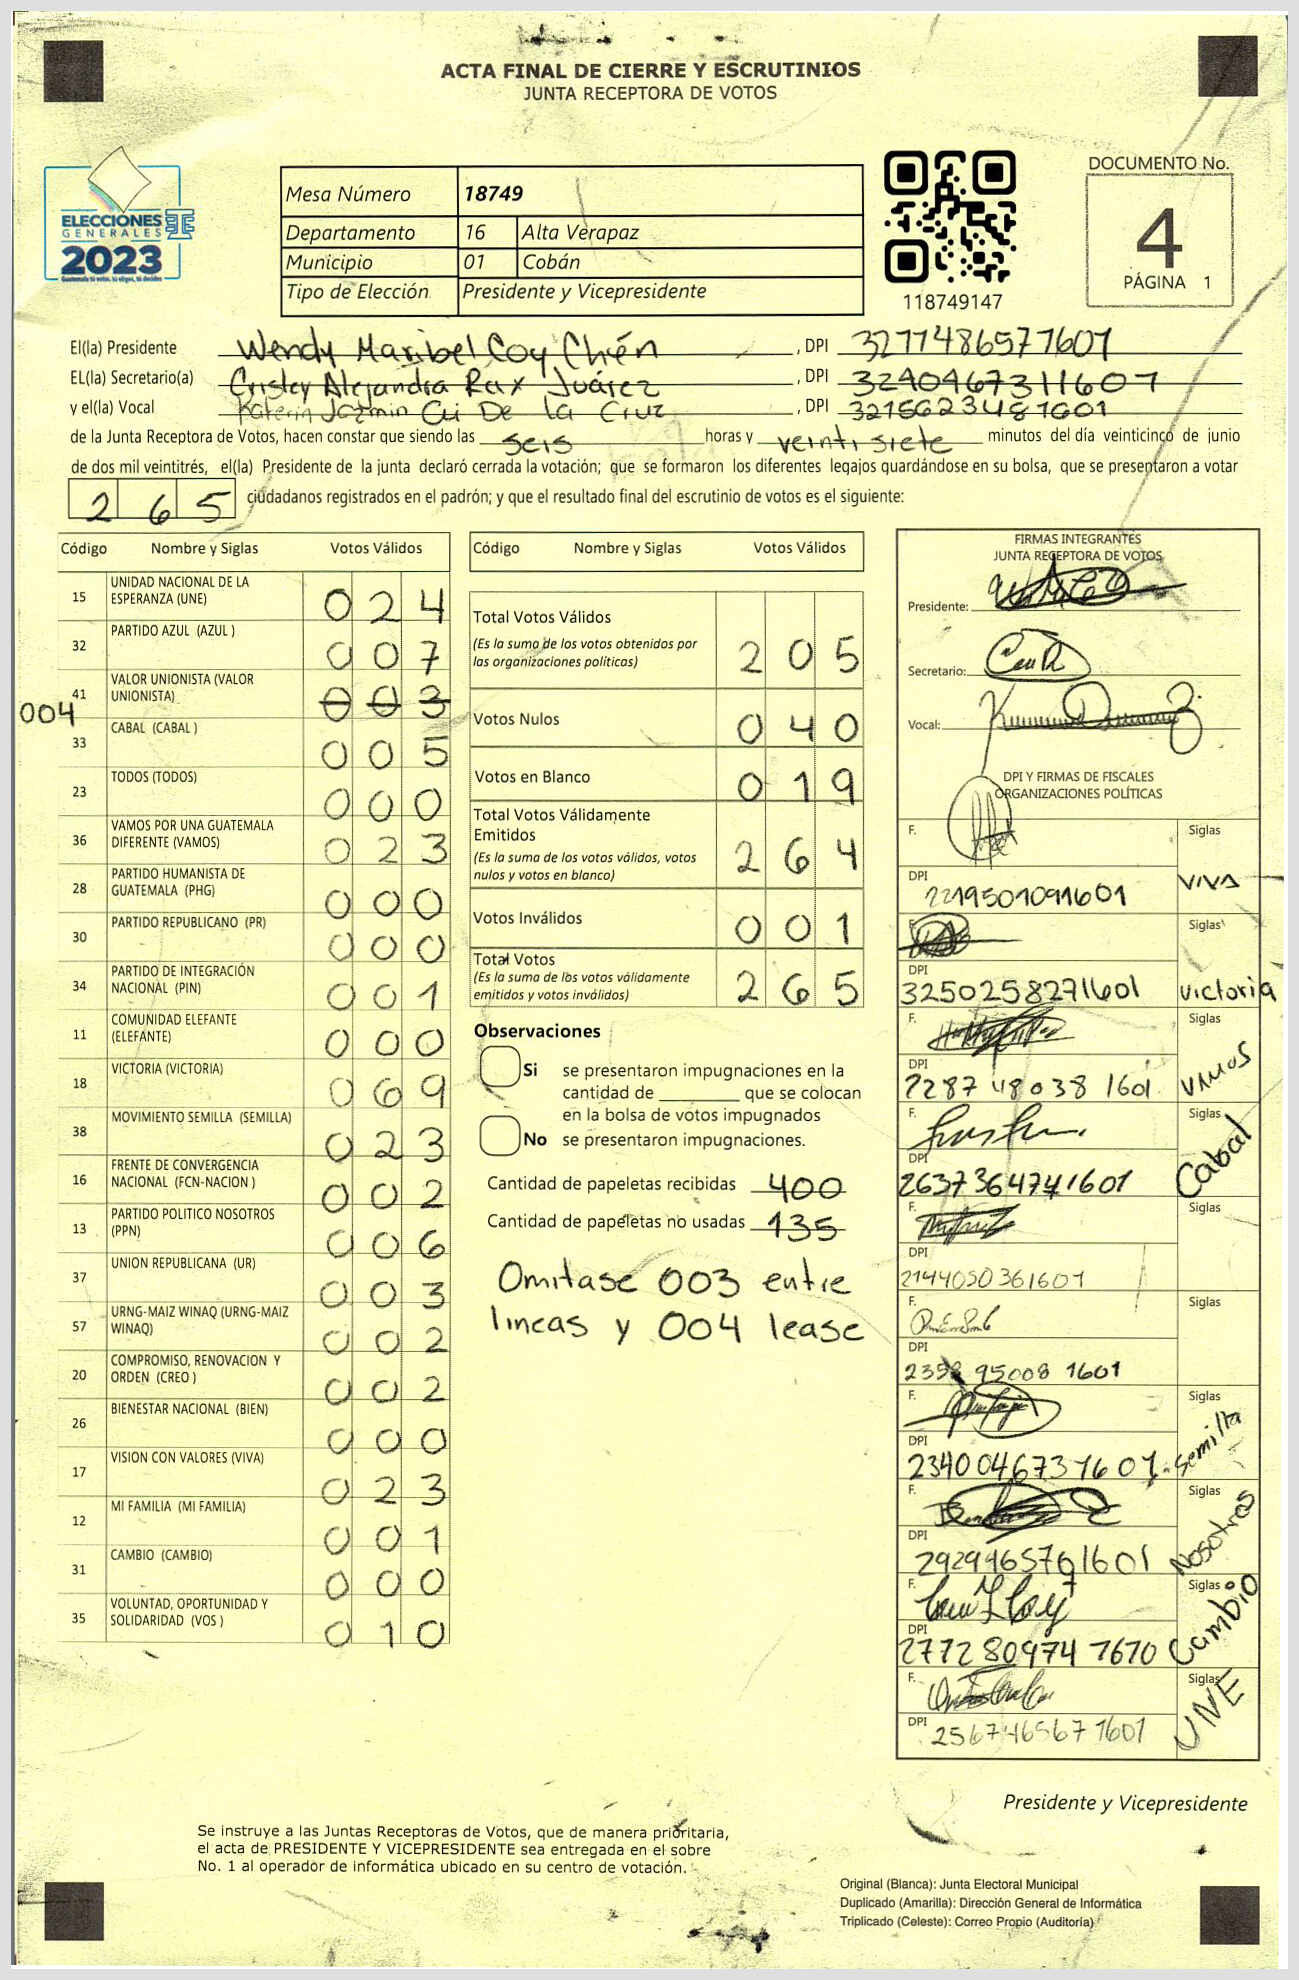 ACTA FINAL DE CIERRE Y ESCRUTINIOS
JUNTA RECEPTORA DE VOTOS
ELECCIONES
GENERALES
2023
Mesa Número 18749
Departamento 16 Alta Verapaz
Municipio 01 Cobán
Tipo de Elección Presidente y Vicepresidente
118749147
DOCUMENTO No.
4
PÁGINA 1
El(la) Presidente Wendy Maribel Coy Chén , DPI 3277486577601
EL(la) Secretario(a) Crisley Alejandra Rax Juárez , DPI 3240467311607
y el(la) Vocal Katerin Jazmin Cú De la Cruz , DPI 3215623481601
de la Junta Receptora de Votos, hacen constar que siendo las seis horas y veintisiete minutos del día veinticinco de junio
de dos mil veintitrés, el(la) Presidente de la junta declaró cerrada la votación; que se formaron los diferentes legajos quardándose en su bolsa, que se presentaron a votar
265 ciudadanos registrados en el padrón; y que el resultado final del escrutinio de votos es el siguiente:
Código Nombre y Siglas Votos Válidos
15 UNIDAD NACIONAL DE LA ESPERANZA (UNE) 024
32 PARTIDO AZUL (AZUL ) 007
004 41 VALOR UNIONISTA (VALOR UNIONISTA) 003
33 CABAL (CABAL ) 005
23 TODOS (TODOS) 000
36 VAMOS POR UNA GUATEMALA DIFERENTE (VAMOS) 023
28 PARTIDO HUMANISTA DE GUATEMALA (PHG) 000
30 PARTIDO REPUBLICANO (PR) 000
34 PARTIDO DE INTEGRACIÓN NACIONAL (PIN) 001
11 COMUNIDAD ELEFANTE (ELEFANTE) 000
18 VICTORIA (VICTORIA) 069
38 MOVIMIENTO SEMILLA (SEMILLA) 023
16 FRENTE DE CONVERGENCIA NACIONAL (FCN-NACION ) 002
13 PARTIDO POLITICO NOSOTROS (PPN) 006
37 UNION REPUBLICANA (UR) 003
57 URNG-MAIZ WINAQ (URNG-MAIZ WINAQ) 002
20 COMPROMISO, RENOVACION Y ORDEN (CREO ) 002
26 BIENESTAR NACIONAL (BIEN) 000
17 VISION CON VALORES (VIVA) 023
12 MI FAMILIA (MI FAMILIA) 001
31 CAMBIO (CAMBIO) 000
35 VOLUNTAD, OPORTUNIDAD Y SOLIDARIDAD (VOS ) 010
Código Nombre y Siglas Votos Válidos
Total Votos Válidos 205
(Es la suma de los votos obtenidos por
las organizaciones políticas)
Votos Nulos 040
Votos en Blanco 019
Total Votos Válidamente
Emitidos 264
(Es la suma de los votos válidos, votos
nulos y votos en blanco)
Votos Inválidos 001
Total Votos 265
(Es la suma de los votos válidamente
emitidos y votos inválidos)
Observaciones
Si se presentaron impugnaciones en la
cantidad de ________ que se colocan
en la bolsa de votos impugnados
No se presentaron impugnaciones.
Cantidad de papeletas recibidas 400
Cantidad de papeletas no usadas 135
Omitase 003 entre
lineas y 004 lease
FIRMAS INTEGRANTES
JUNTA RECEPTORA DE VOTOS
Presidente:
Secretario:
Vocal:
DPI Y FIRMAS DE FISCALES
ORGANIZACIONES POLÍTICAS
F. Siglas
DPI 2219501091601 VIVA
F. Siglas
DPI 3250258271601 Victoria
F. Siglas
DPI 2287 48038 1601 VAMOS
F. Siglas
DPI 2637364741601 Cabal
F. Siglas
DPI 2144050361601
F. Siglas
DPI 2358 95008 1601
F. Siglas
DPI 2340046731601 Semilla
F. Siglas
DPI 2929465761601 Nosotros
F. Siglas
DPI 2772 80974 1610 Cambio
F. Siglas
DPI 2567465671601 UNE
Presidente y Vicepresidente
Se instruye a las Juntas Receptoras de Votos, que de manera prioritaria,
el acta de PRESIDENTE Y VICEPRESIDENTE sea entregada en el sobre
No. 1 al operador de informática ubicado en su centro de votación.
Original (Blanca): Junta Electoral Municipal
Duplicado (Amarilla): Dirección General de Informática
Triplicado (Celeste): Correo Propio (Auditoría)